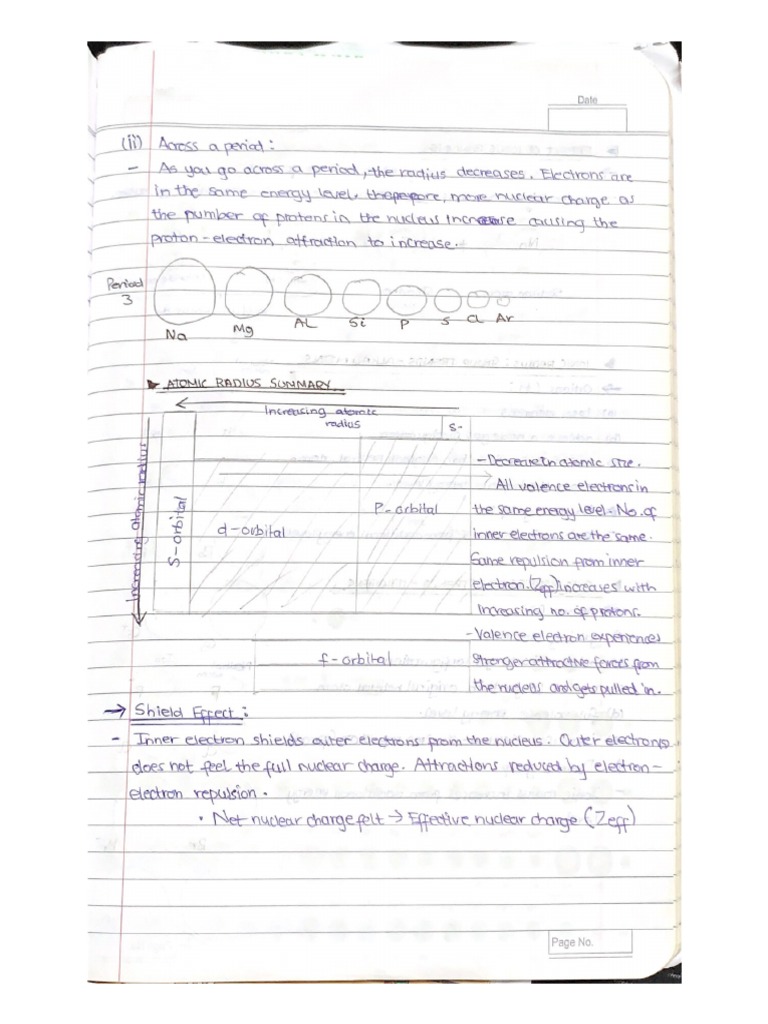 Date
(ii) Across a period:
- As you go across a period, the radius decreases. Electrons are
in the same energy level, therefore, more nuclear charge as
the number of protons in the nucleus increase causing the
proton-electron attraction to increase.
Period
3
Na Mg AL Si P S Cl Ar
ATOMIC RADIUS SUMMARY
Increasing atomic
radius
S-
Increasing atomic radius
S-orbital
d-orbital
P-orbital
- Decrease in atomic size.
→ All valence electrons in
the same energy level. No. of
inner electrons are the same.
Same repulsion from inner
electron. (Zeff) increases with
increasing no. of protons.
- Valence electron experiences
stronger attractive forces from
the nucleus and gets pulled in.
f-orbital
→ Shield Effect:
- Inner electron shields outer electrons from the nucleus. Outer electrons
does not feel the full nuclear charge. Attractions reduced by electron-
electron repulsion.
• Net nuclear charge felt → Effective nuclear charge (Zeff)
Page No.